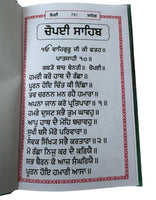 ਚੌਪਈ (੧) ਸਾਹਿਬ
ਚੌਪਈ ਸਾਹਿਬ
ੴ ਵਾਹਿਗੁਰੂ ਜੀ ਕੀ ਫਤਹ
ਪਾਤਸਾਹੀ ੧੦॥
ਕਬਯੋ ਬਾਚ ਬੇਨਤੀ ਚੌਪਈ॥
ਹਮਰੀ ਕਰੋ ਹਾਥ ਦੈ ਰੱਛਾ॥
ਪੂਰਨ ਹੋਇ ਚਿੱਤ ਕੀ ਇੱਛਾ॥
ਤਵ ਚਰਨਨ ਮਨ ਰਹੈ ਹਮਾਰਾ॥
ਅਪਨਾ ਜਾਨ ਕਰੋ ਪ੍ਰਤਿਪਾਰਾ॥
ਹਮਰੇ ਦੁਸਟ ਸਭੈ ਤੁਮ ਘਾਵਹੁ॥
ਆਪੁ ਹਾਥ ਦੈ ਮੋਹਿ ਬਚਾਵਹੁ॥
ਸੁਖੀ ਬਸੈ ਮੋਰੋ ਪਰਿਵਾਰਾ॥
ਸੇਵਕ ਸਿੱਖ ਸਭੈ ਕਰਤਾਰਾ॥
ਮੋ ਰੱਛਾ ਨਿਜੁ ਕਰ ਦੈ ਕਰਿਯੈ॥
ਸਭ ਬੈਰਨ ਕੋ ਆਜ ਸੰਘਰਿਯੈ॥
ਪੂਰਨ ਹੋਇ ਹਮਾਰੀ ਆਸਾ॥